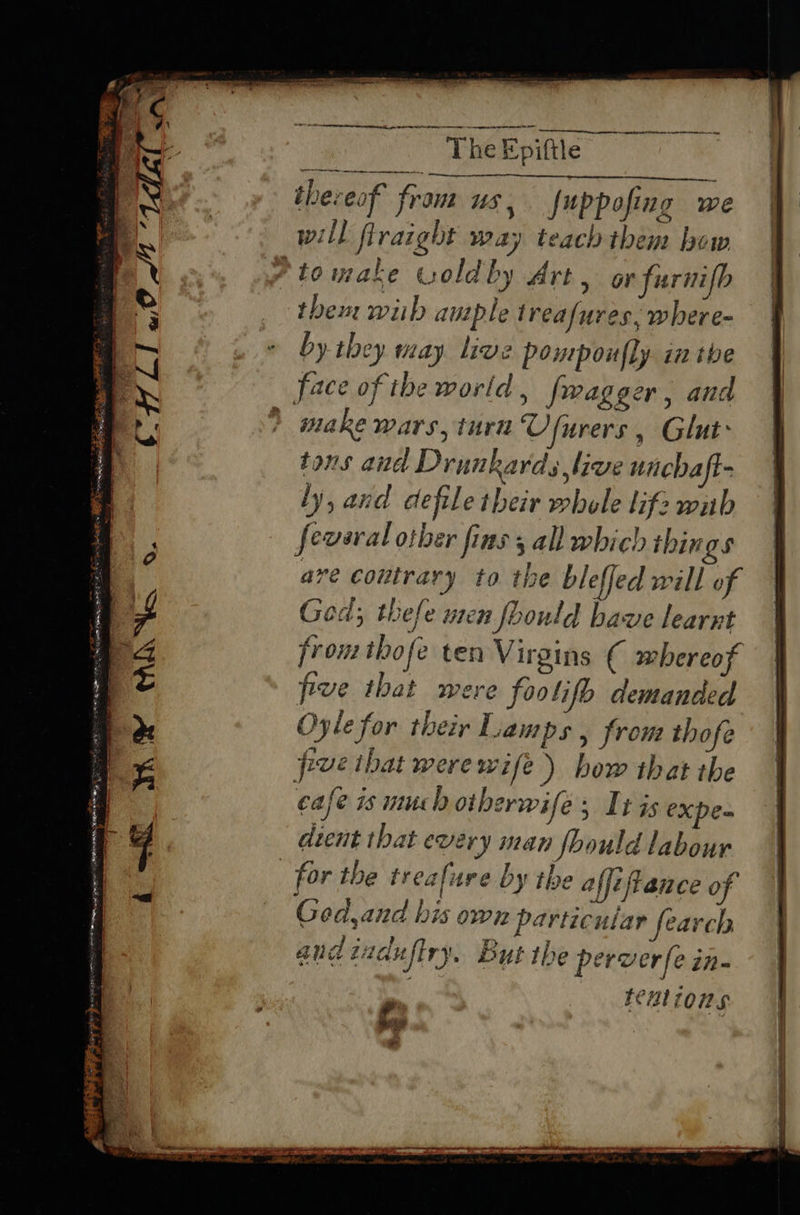 The Epiſtle
thereof from us, ſuppoſing we
will ſtraight way teach them how
to make Gold by Art, or furniſh
them with ample treaſures, where-
by they may live pompouſly in the
face of the world, ſwagger, and
make wars, turn Uſurers, Glut-
tons and Drunkards, live unchaſt-
ly, and defile their whole life with
ſeveral other ſins; all which things
are contrary to the bleſſed will of
God; theſe men ſhould have learnt
from thoſe ten Virgins ( whereof
five that were fooliſh demanded
Oyle for their Lamps, from thoſe
five that were wiſe ) how that the
caſe is much otherwiſe; It is expe-
dient that every man ſhould labour
for the treaſure by the aſſiſtance of
God, and his own particular ſearch
and induſtry. But the perverſe in-
tentions